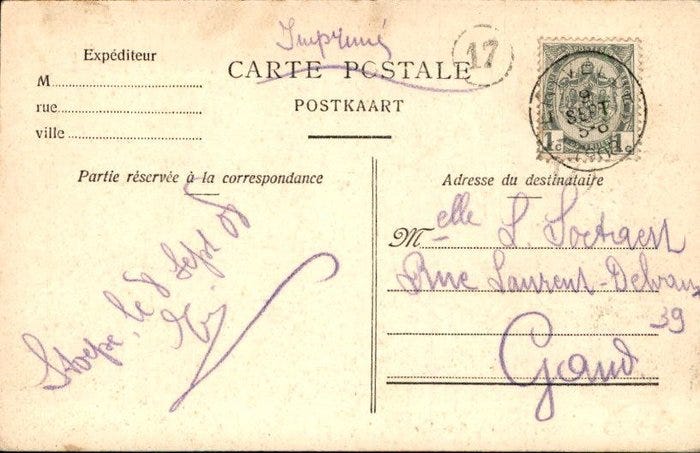 Imprimé
17
Expéditeur
CARTE POSTALE
M
POSTKAART
rue
ville
9
SEPT
5-6
1c 1c
Partie réservée à la correspondance
Adresse du destinataire
Melle L. Soetaert
Rue Laurent-Delvaux
39
Gand.
le 8 Sept 08